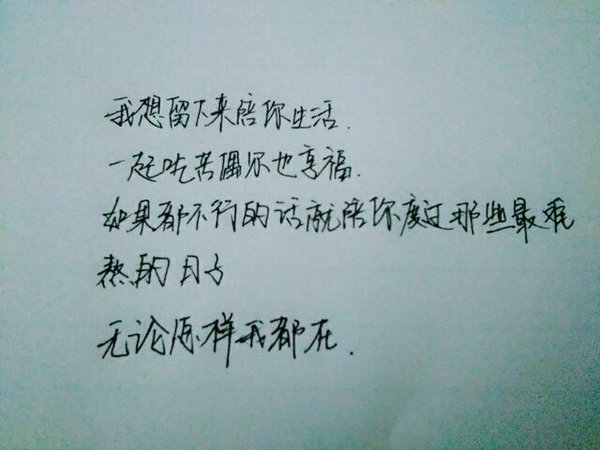 我想留下来陪你生活.
一起吃苦偶尔也享福.
如果都不行的话就陪你度过那些最难
熬的日子
无论怎样我都在.